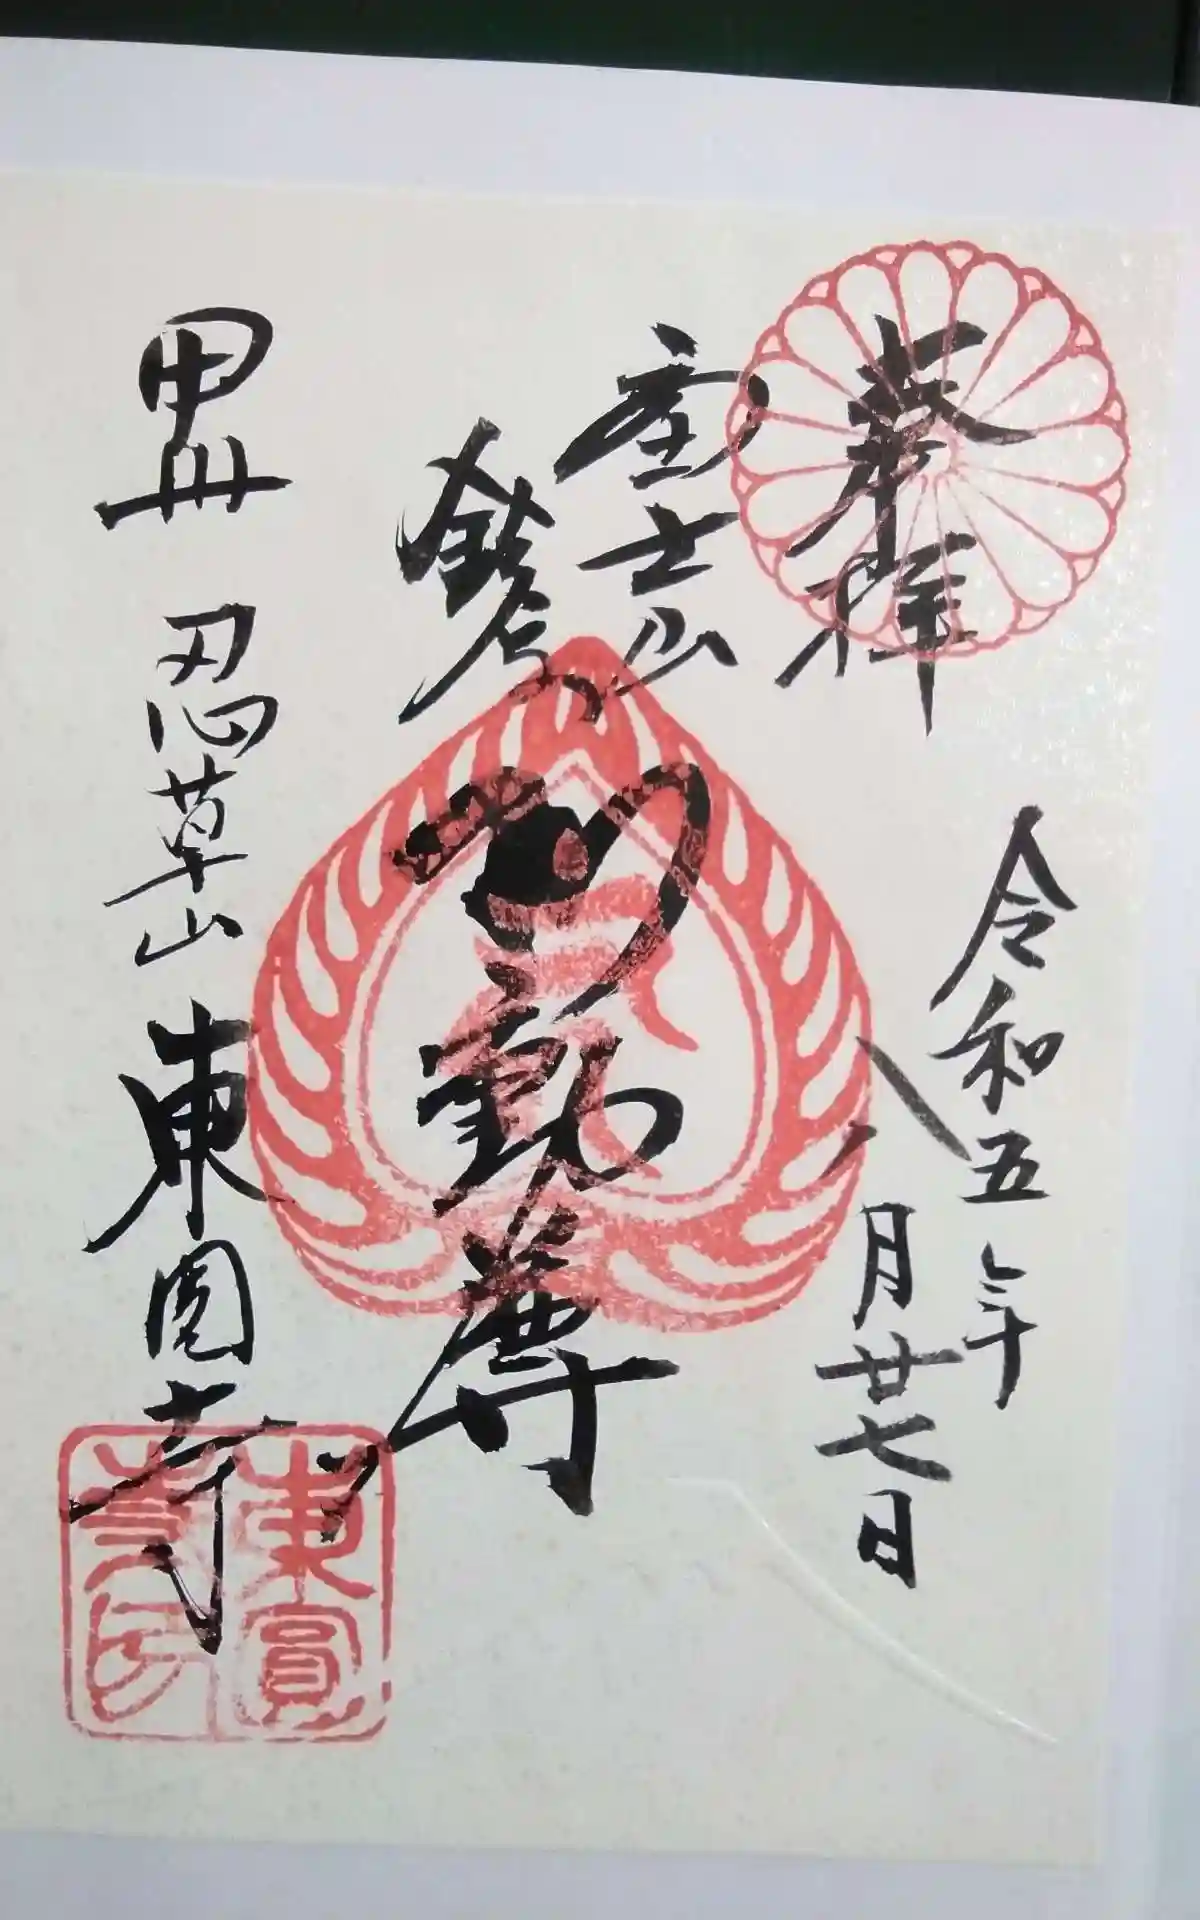 奉拝
令和五年
八月廿七日
富士山
鎗
不動尊
甲州 忍草山 東圓寺
東圓
寺印